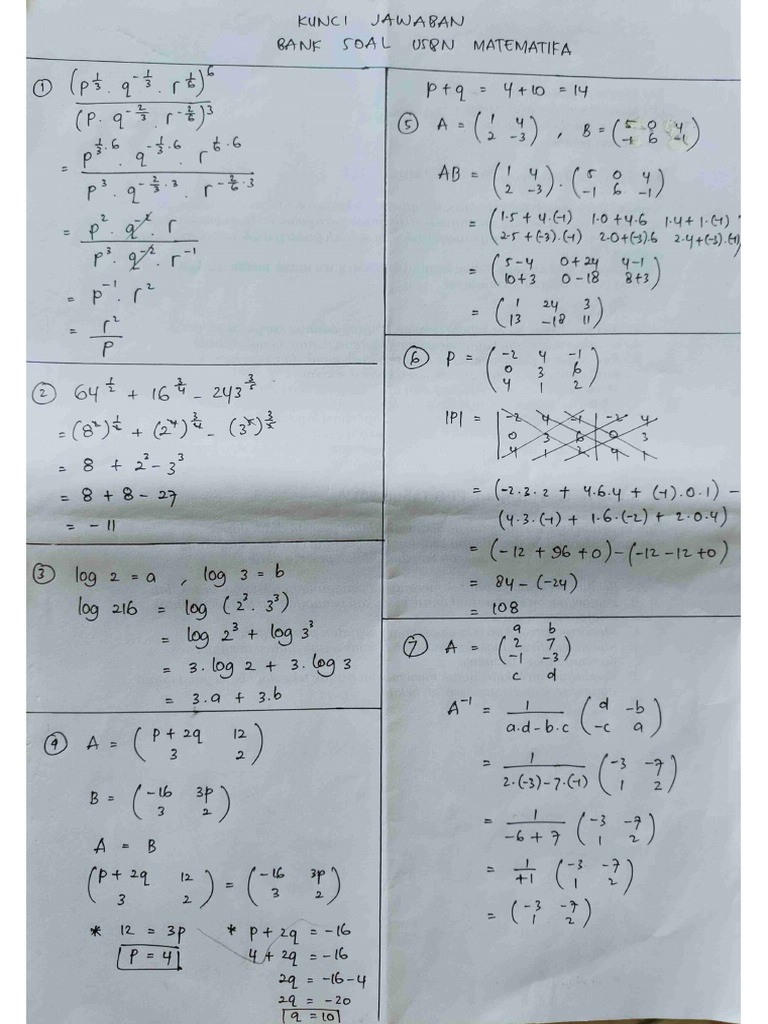 KUNCI JAWABAN
BANK SOAL USBN MATEMATIKA
① (p^(1/3) · q^(-1/3) · r^(1/6))^6 / (p · q^(-2/3) · r^(-2/6))^3
= p^(1/3 · 6) · q^(-1/3 · 6) · r^(1/6 · 6) / p^3 · q^(-2/3 · 3) · r^(-2/6 · 3)
= p^2 · q^-2 · r / p^3 · q^-2 · r^-1
= p^-1 · r^2
= r^2 / p
② 64^(1/2) + 16^(3/4) - 243^(3/5)
= (8^2)^(1/2) + (2^4)^(3/4) - (3^5)^(3/5)
= 8 + 2^3 - 3^3
= 8 + 8 - 27
= -11
③ log 2 = a , log 3 = b
log 216 = log (2^3 · 3^3)
= log 2^3 + log 3^3
= 3 · log 2 + 3 · log 3
= 3 · a + 3 · b
④ A = (p + 2q 12
3 2)
B = (-16 3p
3 2)
A = B
(p + 2q 12
3 2) = (-16 3p
3 2)
* 12 = 3p
p = 4
* p + 2q = -16
4 + 2q = -16
2q = -16 - 4
2q = -20
q = 10
p + q = 4 + 10 = 14
⑤ A = (1 4
2 -3) , B = (5 0 4
-1 6 -1)
AB = (1 4
2 -3) · (5 0 4
-1 6 -1)
= (1·5 + 4·(-1) 1·0 + 4·6 1·4 + 1·(-1)
2·5 + (-3)·(-1) 2·0 + (-3)·6 2·4 + (-3)·(-1)
= (5 - 4 0 + 24 4 - 1
10 + 3 0 - 18 8 + 3)
= (1 24 3
13 -18 11)
⑥ P = (-2 4 -1
0 3 6
4 1 2)
|P| = |-2 4 -1| -2 4
0 3 6 0 3
4 1 2 4 1
= (-2·3·2 + 4·6·4 + (-1)·0·1) -
(4·3·(-1) + 1·6·(-2) + 2·0·4)
= (-12 + 96 + 0) - (-12 - 12 + 0)
= 84 - (-24)
= 108
a b
⑦ A = (2 7
-1 -3)
c d
A^-1 = 1 / a·d - b·c (d -b
-c a)
= 1 / 2·(-3) - 7·(-1) (-3 -7
1 2)
= 1 / -6 + 7 (-3 -7
1 2)
= 1 / +1 (-3 -7
1 2)
= (-3 -7
1 2)